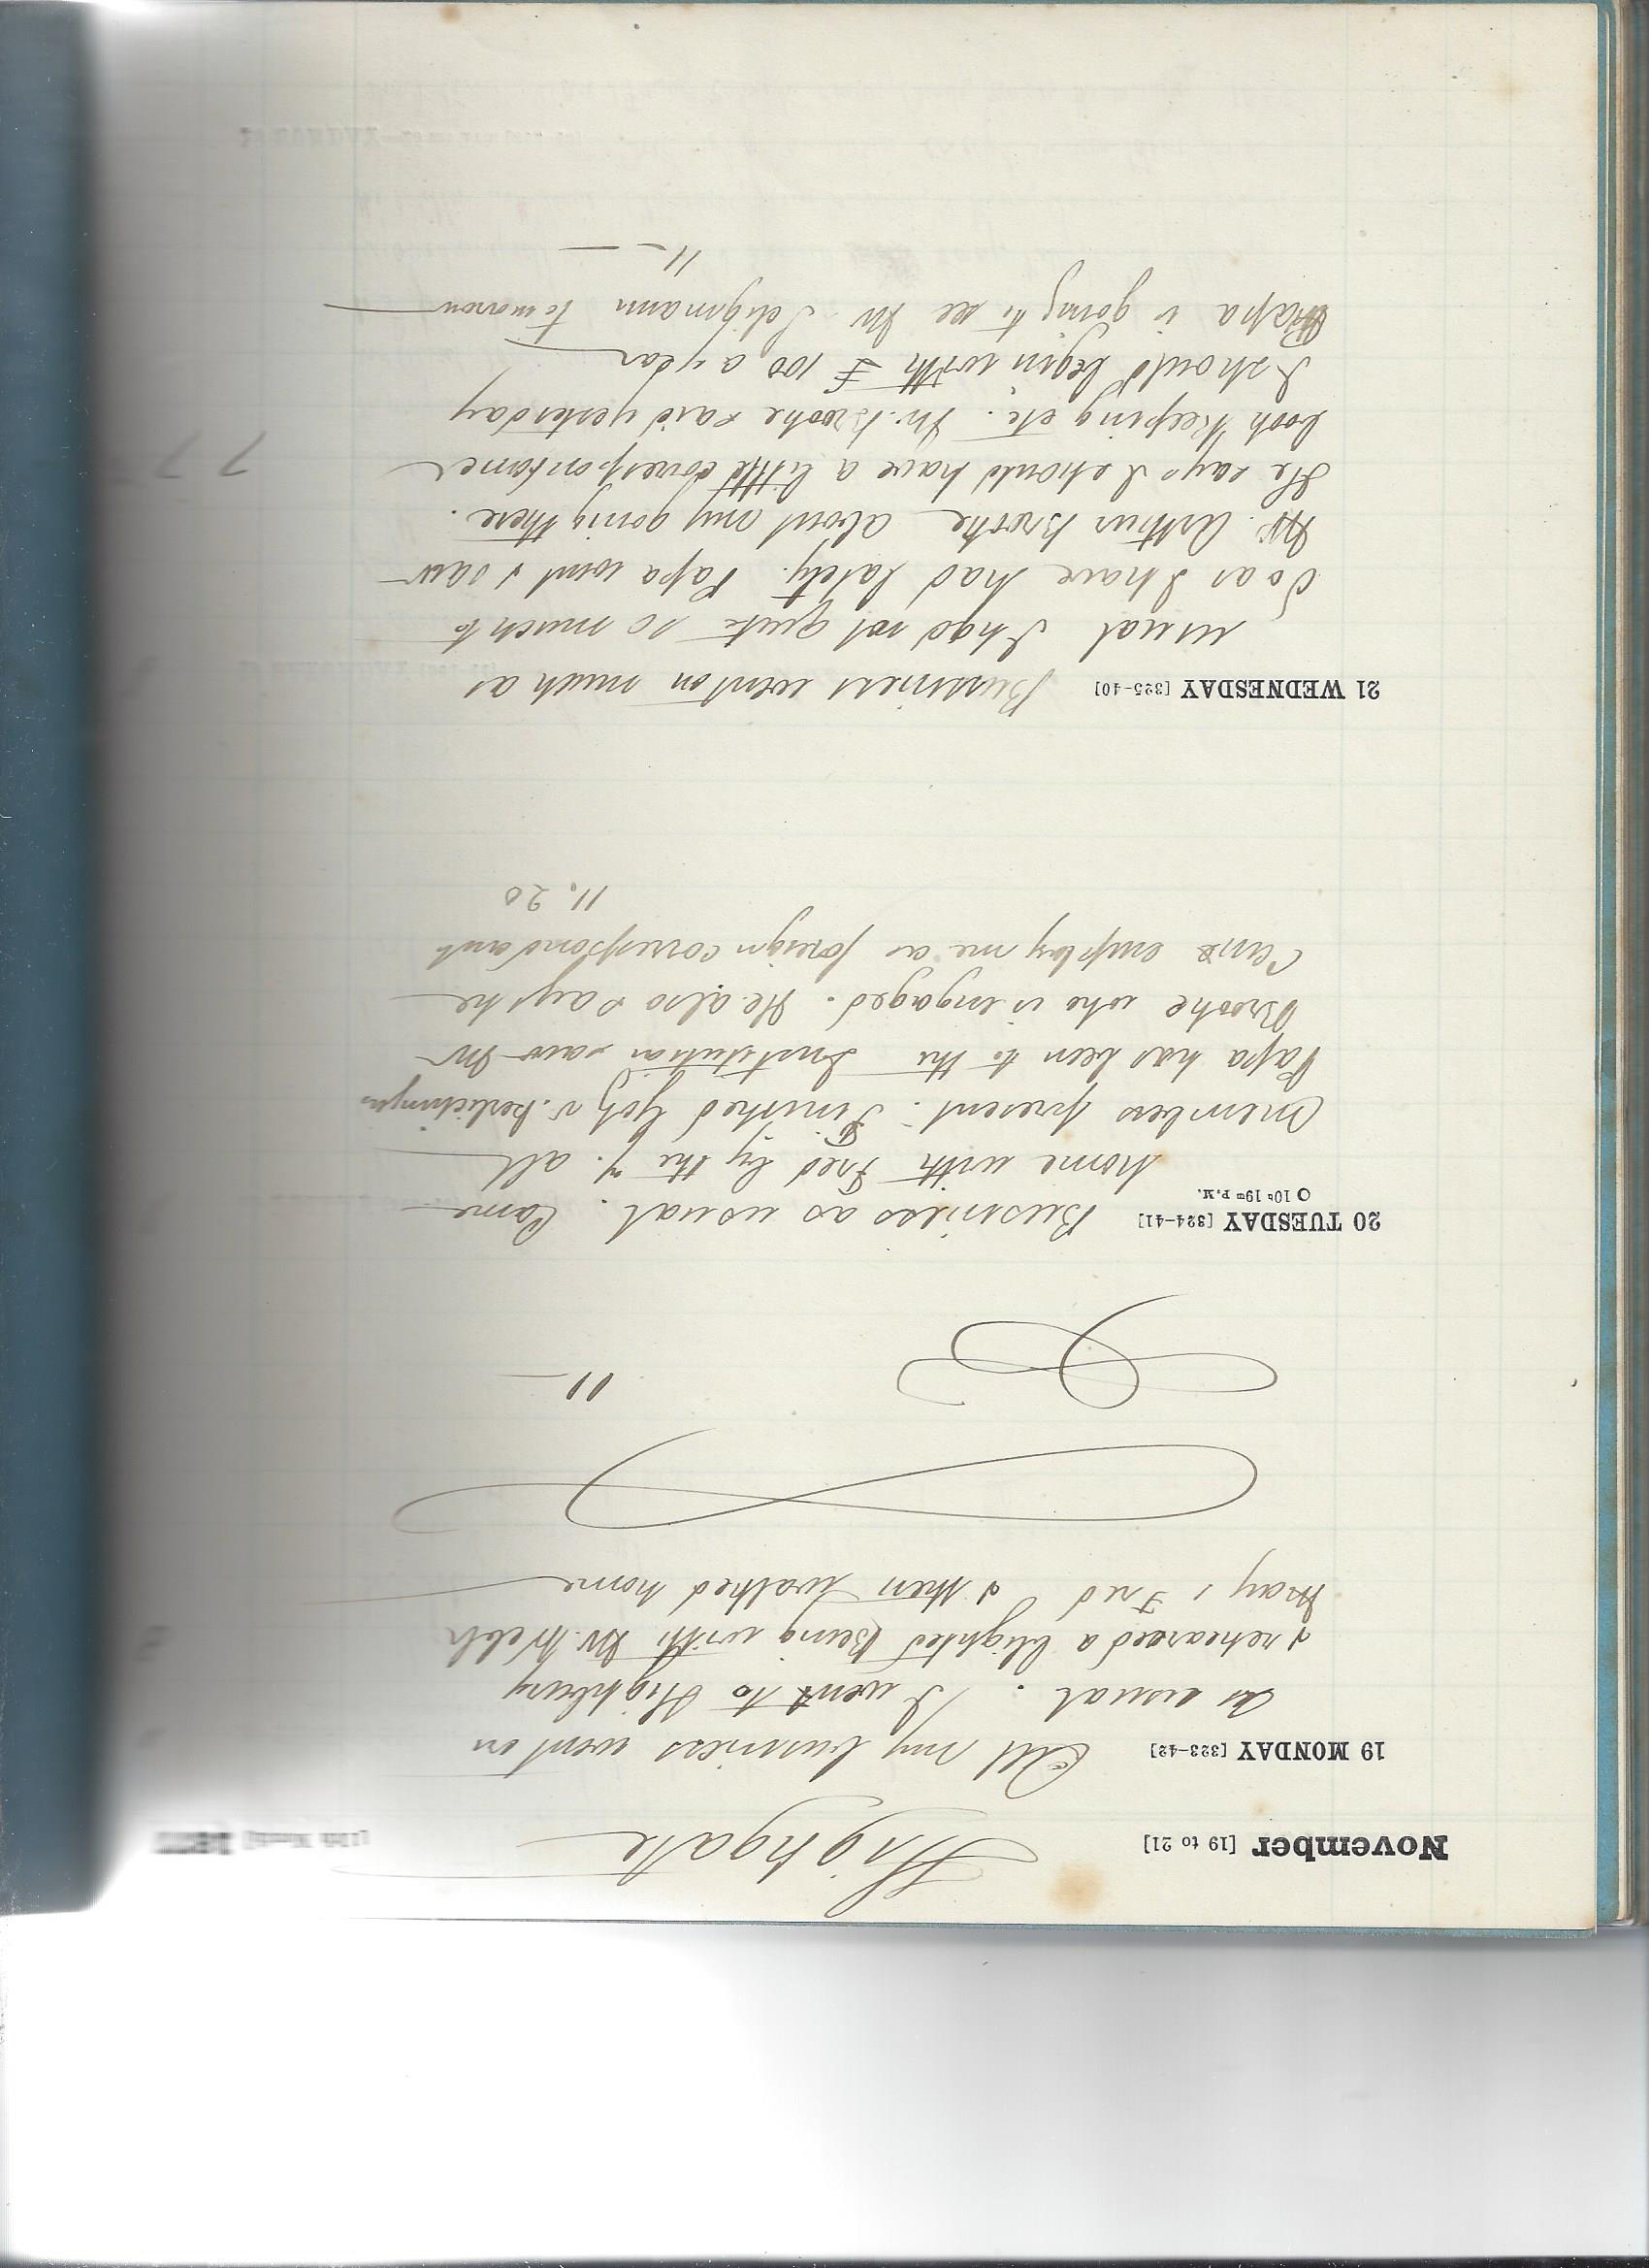 November [19 to 21] Highgate
19 MONDAY [323-42] All my business went on
as usual. I went to Highbury
& rehearsed a blighted Being with Mr. Webb
May, Fred & then walked home
11 —
20 TUESDAY [324-41] Business as usual. Came
○ 10h 19m P.M.
home with Fred by the 7. all
members present. Finished Götz v. Berlichingen
Papa has been to the Institution saw Mr
Brooke who is engaged. He also says he
Cans employ me as foreign correspondant
11.20
21 WEDNESDAY [325-40] Bussiness went on much as
usual I had not quite so much to
do as I have had lately. Papa went & saw
Mr. Arthur Brooke about my going there.
He says I should have a little correspondance
book keeping etc. Mr. Brooke said yesterday
I should begin with £ 100 a year
Papa is going to see Mr Seligmann tomorow
11 —